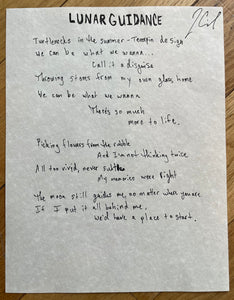 LUNAR GUIDANCE
Turtlenecks in the summer - Terrapin design
We can be what we wanna...
Call it a disguise
Throwing stones from my own glass home
We can be what we wanna
There's so much
more to life.
Picking flowers from the rubble
And I'm not thinking twice
All too vivid, never subtle
My memories were right
The moon still guides me, no matter where you are
If I put it all behind me,
We'd have a place to start.